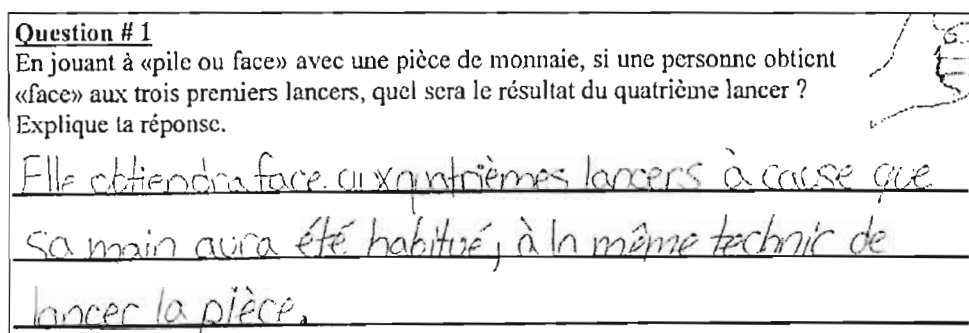 Question # 1
En jouant à «pile ou face» avec une pièce de monnaie, si une personne obtient
«face» aux trois premiers lancers, quel sera le résultat du quatrième lancer ?
Explique ta réponse.
Elle obtiendra face aux quatrièmes lancers à cause que
sa main aura été habitué, à la même technic de
lancer la pièce.